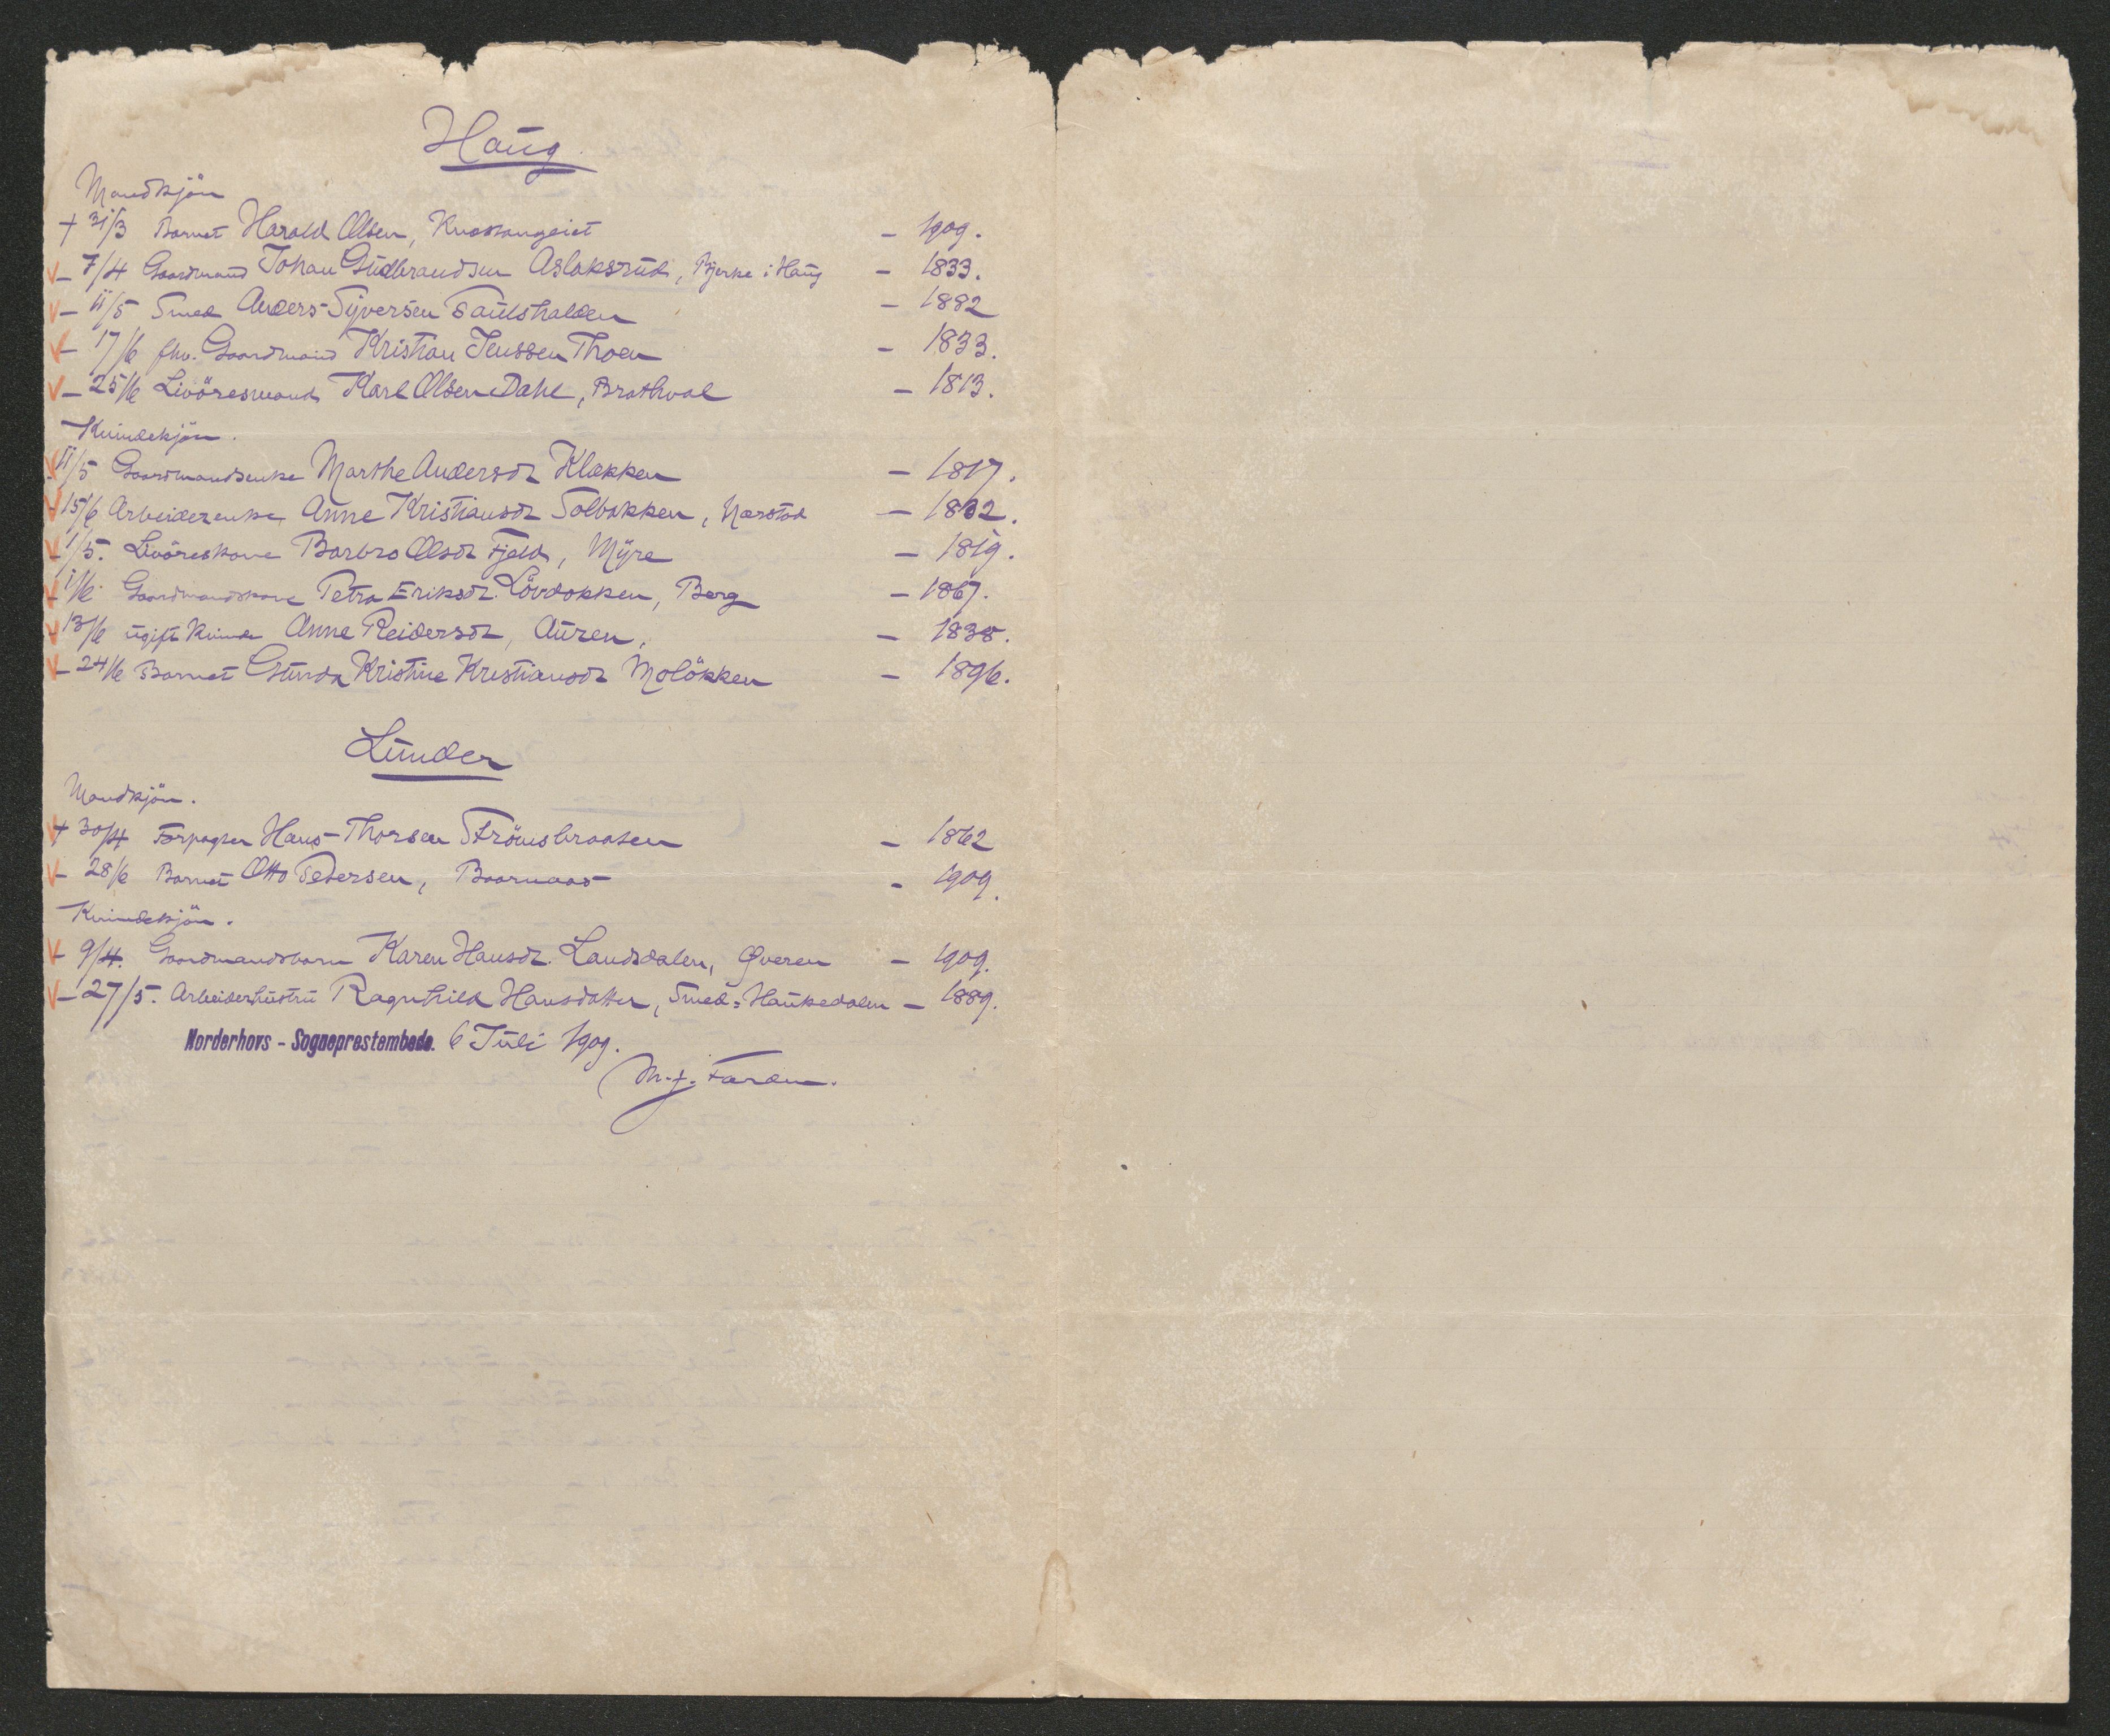 Haug
Mandkjön
+ 31/3 Barnet Harald Olsen, – 1909.
– 7/4 Gaardmand Johan Gudbrandsen Aslaksrud, Bjerke i Haug – 1833.
– 11/5 Smed Anders Syversen – 1882
– 17/6 fhv. Gaardmand Kristian Jenssen Thoen – 1833.
– 25/6 Livöresmand Karl Olsen Dahl, Brathval – 1813.
Kvindekjön.
11/5 Gaardmandsenke Marthe Andersdr Klækken – 1817.
15/6 Arbeiderenke Anne Kristiansdr Solbakken, Nærstad – 1832.
– 1/5. Livöreskone Barbro Olsdr Fjeld, Myre – 1819.
– 1/6. Gaardmandskone Petra Eriksdr. Lövdokken, Berg – 1867.
13/6 ugift Kvinde Anne Reidersdr, Auren, – 1838.
– 24/6 Barnet Gunda Kristine Kristiansdr Moløkken – 1896.
Lunder
Mandkjön.
+ 30/4 Forpagter Hans Thorsen Strömsbraaten – 1862
– 28/6 Barnet Otto Pedersen, Baarnaas – 1909.
Kvindekjön.
– 9/4. Gaardmandsbarn Karen Hansdr. Landsdalen, Qveren – 1909.
– 27/5. Arbeiderhustru Ragnhild Hansdatter, Smed=Haukedalen – 1889.
Norderhovs – Sogneprestembede. 6 Juli 1909.
M. J. Farden.